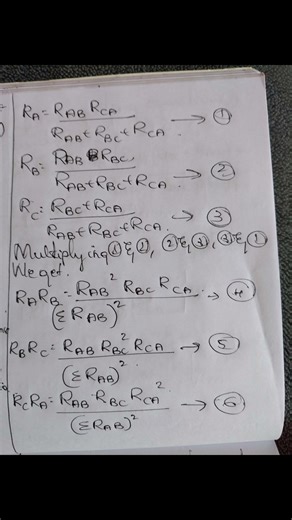 R_A = R_AB R_CA / R_AB + R_BC + R_CA → ①
R_B = R_AB R_BC / R_AB + R_BC + R_CA → ②
R_C = R_BC + R_CA / R_AB + R_BC + R_CA. → ③
Multiplying ① & ②, ② & ③, ③ & ①
We get.
R_A R_B = R_AB² R_BC R_CA / (ΣR_AB)² → ④
R_B R_C = R_AB R_BC² R_CA / (ΣR_AB)² → ⑤
R_C R_A = R_AB · R_BC R_CA² / (ΣR_AB)² → ⑥